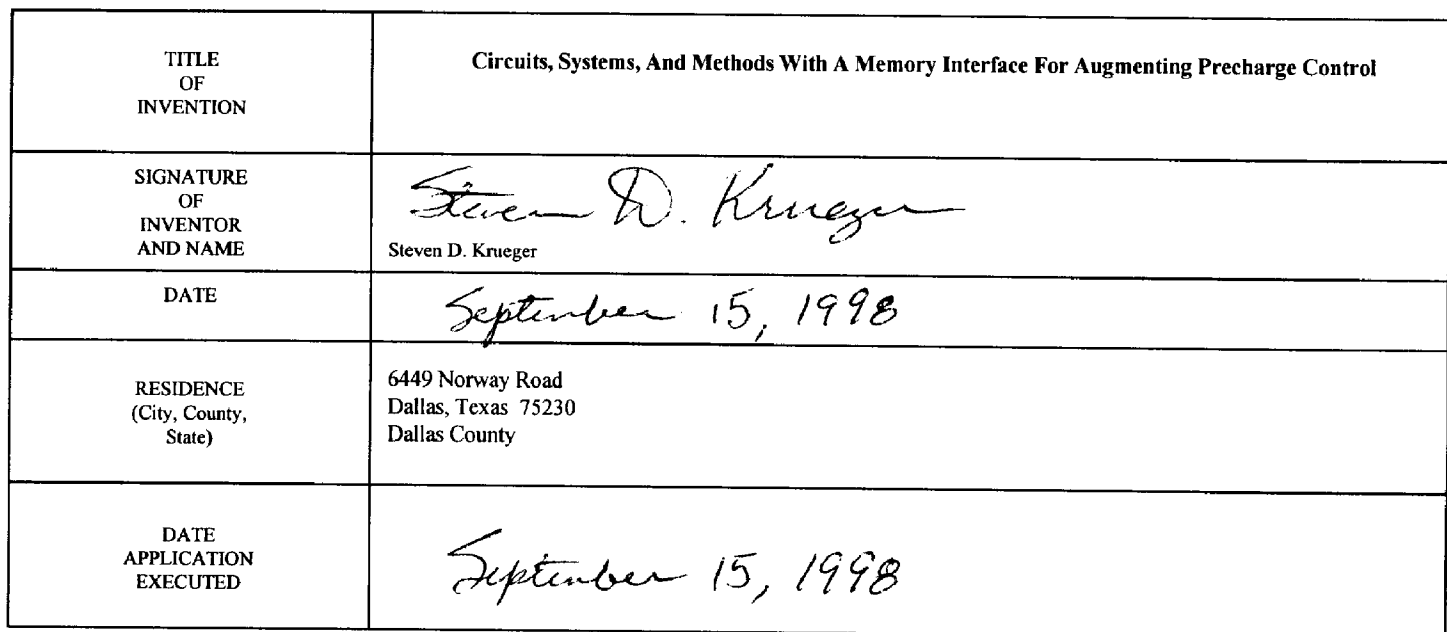 TITLE
OF
INVENTION
Circuits, Systems, And Methods With A Memory Interface For Augmenting Precharge Control
SIGNATURE
OF
INVENTOR
AND NAME
Steven D. Krueger
Steven D. Krueger
DATE
September 15, 1998
RESIDENCE
(City, County,
State)
6449 Norway Road
Dallas, Texas 75230
Dallas County
DATE
APPLICATION
EXECUTED
September 15, 1998